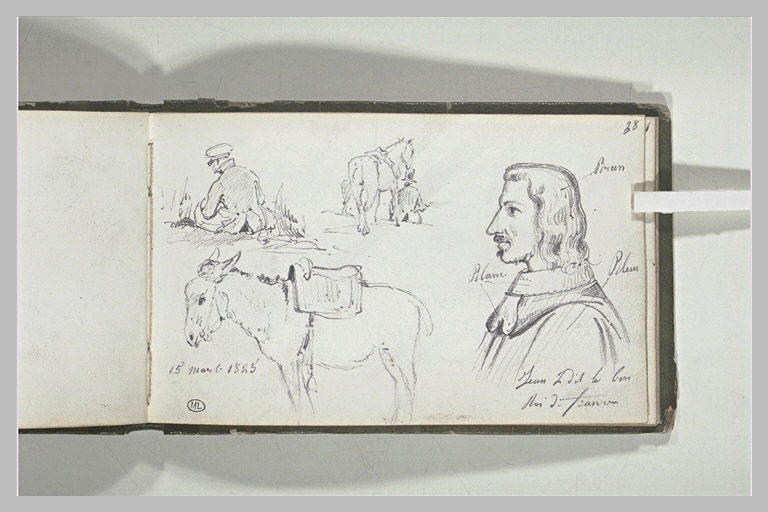 38
Brun
Blanc
Bleu
15 mars 1845
Jean 2 dit le bon
Roi de france
ML